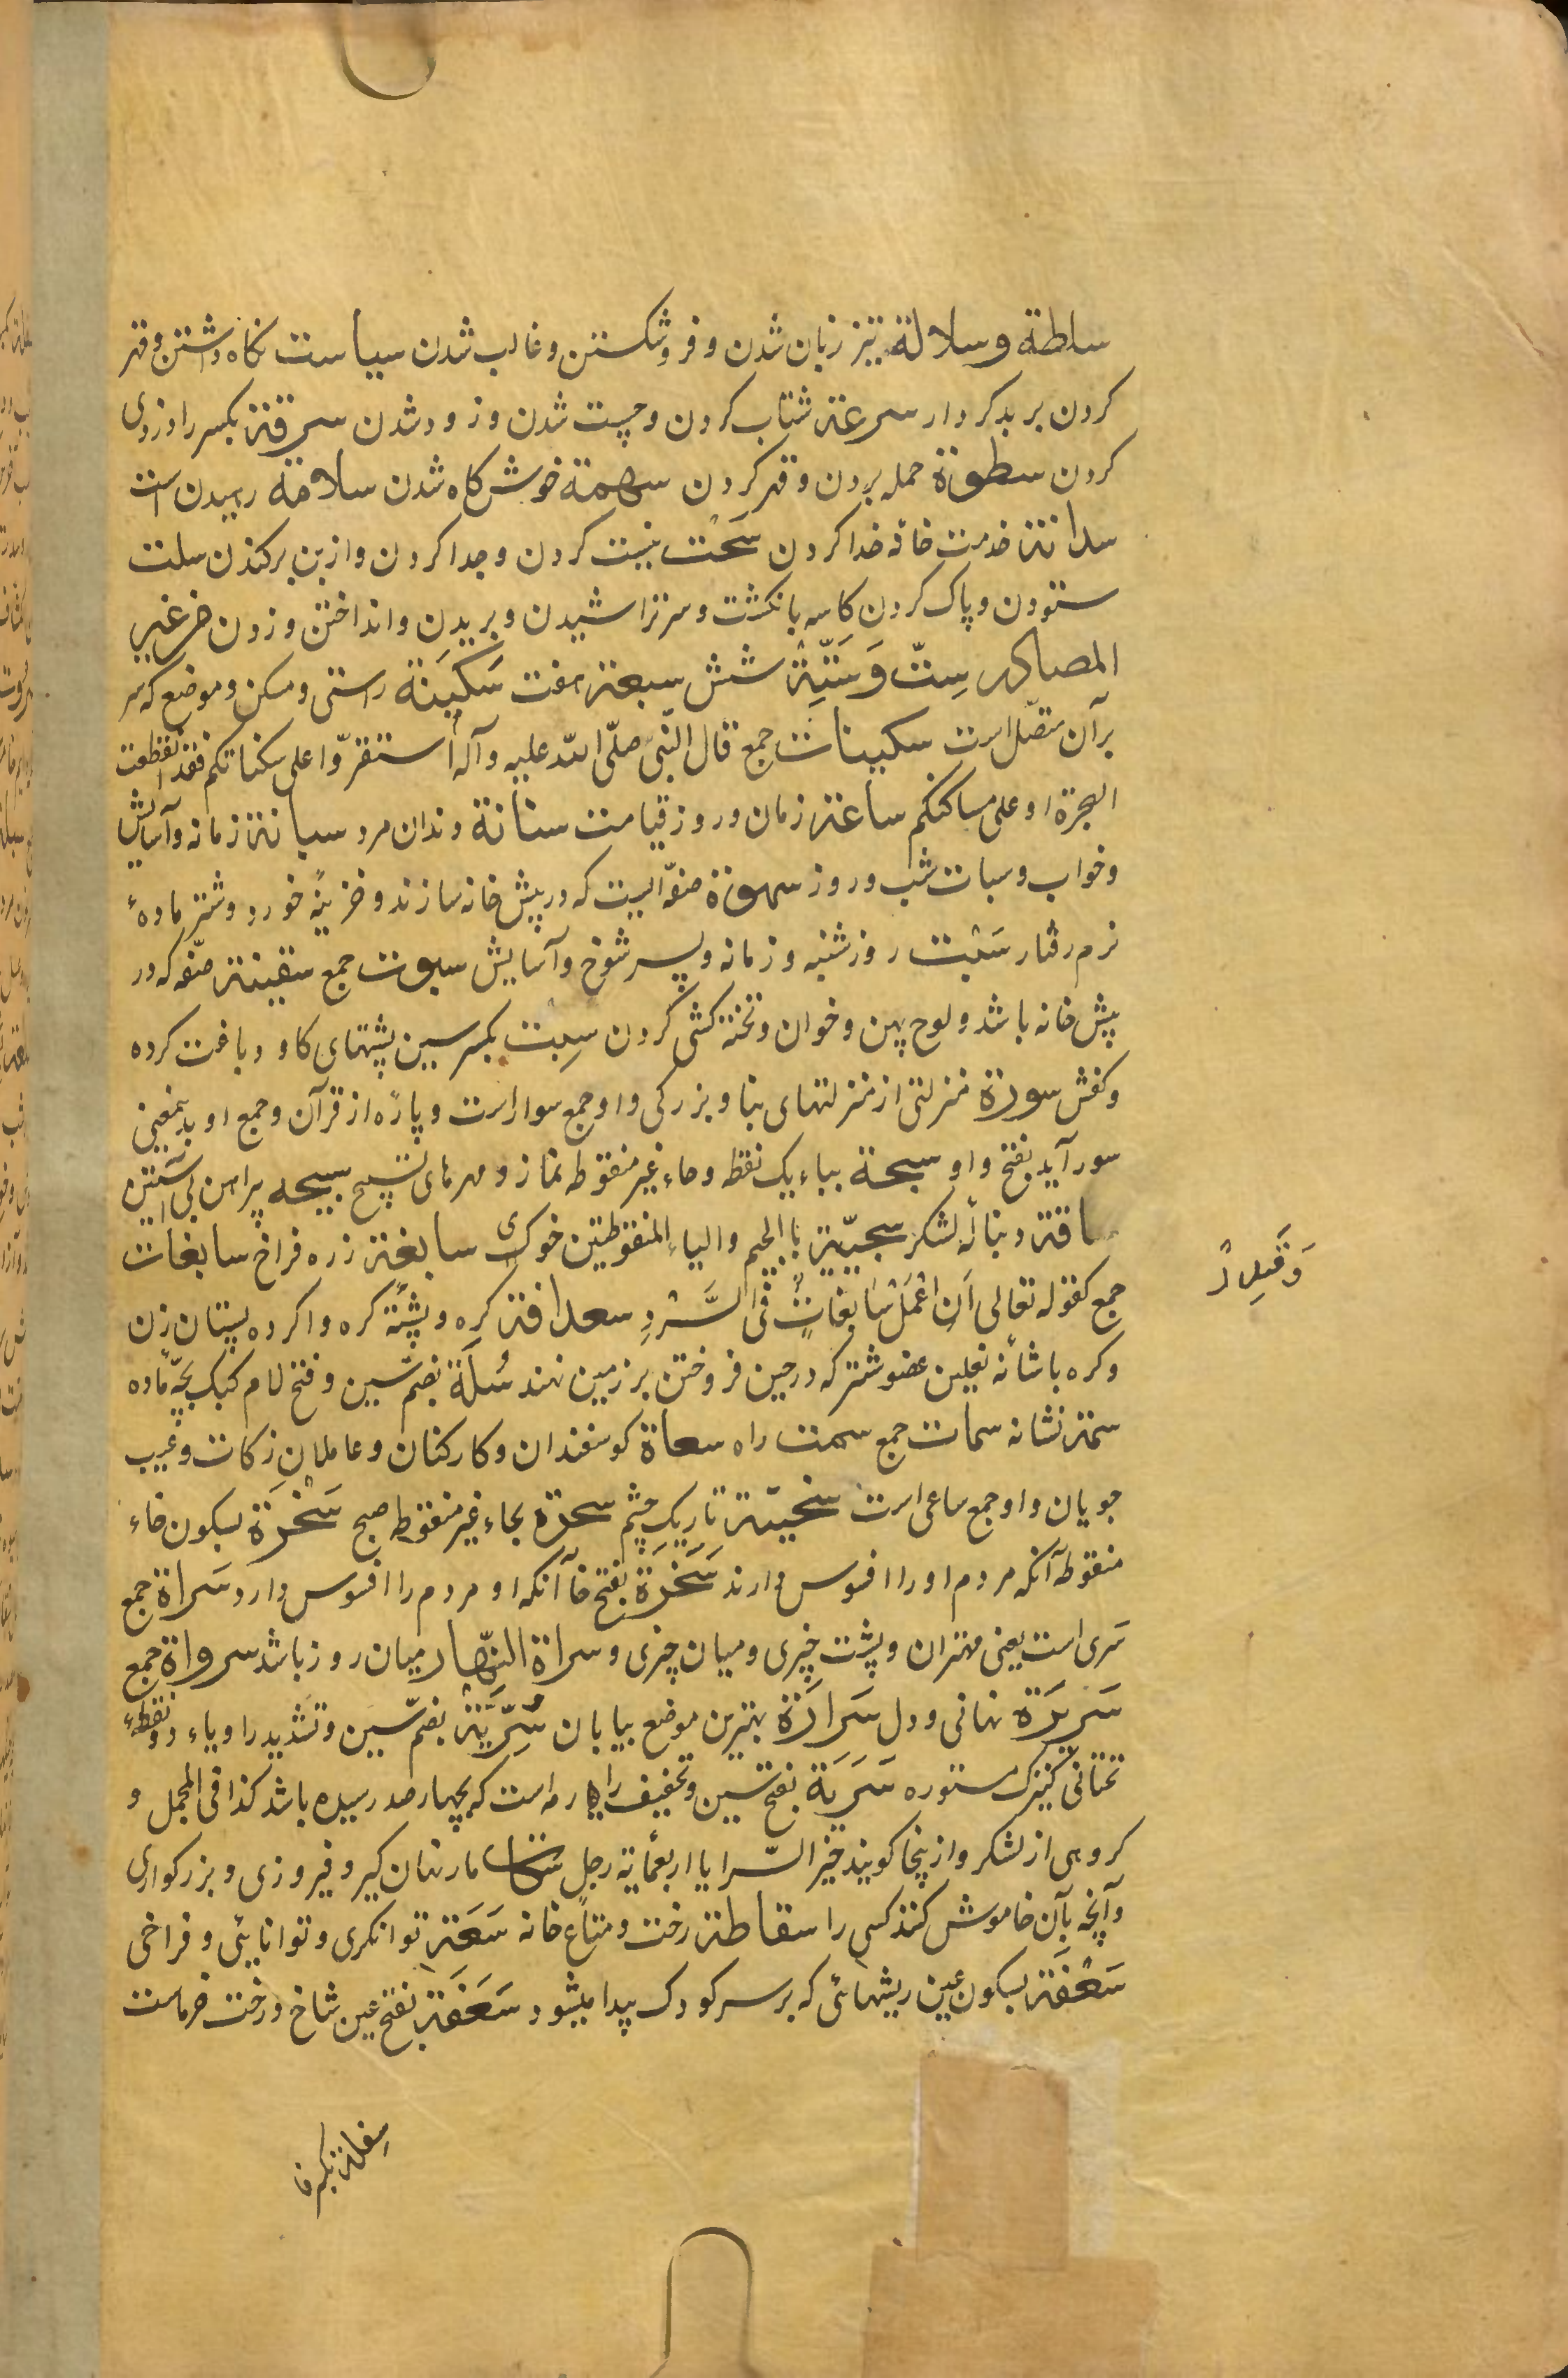 سلطة و سلالة تیز زبان شدن و فروشکستن و غالب شدن سیاست نکاه داشتن و قهر
کردن بر بد کردار سرعة شتاب کردن و چست شدن و زود شدن سرقة بکسر را دزدی
کردن سطوة حمله بردن و قهر کردن سهمة خوش کاه شدن سلامة رهیدن است
سدانة خدمت خانه خدا کردن سَحْت نیست کردن و جدا کردن و از بن برکندن سلت
ستودن و پاک کردن کاسه بانکشت و سر تراشیدن و بریدن و انداختن و زدن من غیر
المصادر سِتّ وَ سَتِّة شش سبعة هفت سَکِینَة راستی و مسکن و موضع که سر
بر آن متصّل است سکینات جمع قال النّبی صلّی الله علیه و آله استقرّوا علی سکناتکم فقد انقطعت
الهجرة او علی مساکنکم ساعة زمان و روز قیامت سنانة دندان مرد سباتة زمانه و آسایش
و خواب و سبات شب و روز سهوة صفّه ایست که در پیش خانه سازند و خزینهٔ خورد و شتر مادهٔ
نرم رفتار سَبْت روز شنبه و زمانه و پسر شوخ و آسایش سبوت جمع سقیفة صفّه که در
پیش خانه باشد و لوح پهن و خوان و تختهٔ کشی کردن سِبت بکسر سین پشتهای کاو دباغت کرده
و کفش سورة منزلتی از منزلتهای بنا و بزرکی و او جمع سوار است و پارهٔ از قرآن و جمع او بدینمعنی
سور آید بفتح واو سبحة بباء یک نقطه و حاء غیر منقوطه نماز و مهرهای تسبیح سبیحه پیراهن بی آستین
ساقة دنبالهٔ لشکر سجیّة با الجیم والیاء المنقوطتین خوی سابغة زره فراخ سابغات
وَ قَلِیلاً
جمع کقوله تعالی اَنِ اعْمَلْ سَابِغَاتٍ فی السَّرْدِ سعدانة کره و پشتهٔ کره و اکرده پستان زن
و کره باشانه نعلین عضو شتر که در حین فروختن بر زمین نهند سُلَکَة بضمّ سین و فتح لام کبک بچّهٔ ماده
سمة نشانه سمات جمع سمت راه سعاة کوسفندان و کارکنان و عاملان زکات و عیب
جویان و او جمع ساعی است سخینة تاریک چشم سحرة بحاء غیر منقوطه صبح سَخْرَة بسکون خاء
منقوطه آنکه مردم او را افسوس دارند سَخَرَة بفتح خا آنکه او مردم را افسوس دارد سَراة جمع
سَری است یعنی مهتران و پشت چیزی و میان چیزی و سراة النّهار میان روز باشد سرواة جمع
سَرِیرَة نهانی و دل سَرارَة بهترین موضع بیابان سُرِّیَّة بضمّ سین و تشدید را و یاء دو نقطهٔ
تحتانی کنیزک مستوره سَرِیَة بفتح سین و تخفیف را رمه است که بچهار صد رسیده باشد کذا فی المجمل و
کروهی از لشکر و از ینجا کویند خیر السّرایا اربعمائة رجل مار نهان کیر و فیروزی و بزرکواری
و آنچه بآن خاموش کنند کسی را سقاطة رخت و متاع خانه سَعَة توانکری و توانایئی و فراخی
سَعْفَة بسکون عین ریشهائی که بر سر کودک پیدا میشود سَعَفَة بفتح عین شاخ درخت خرماست
سفلة بکسر فا